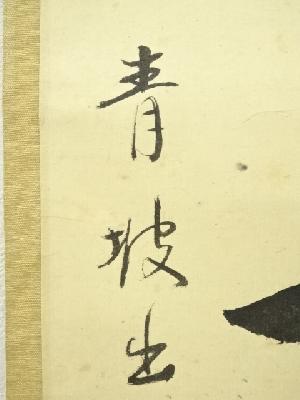 青坡生